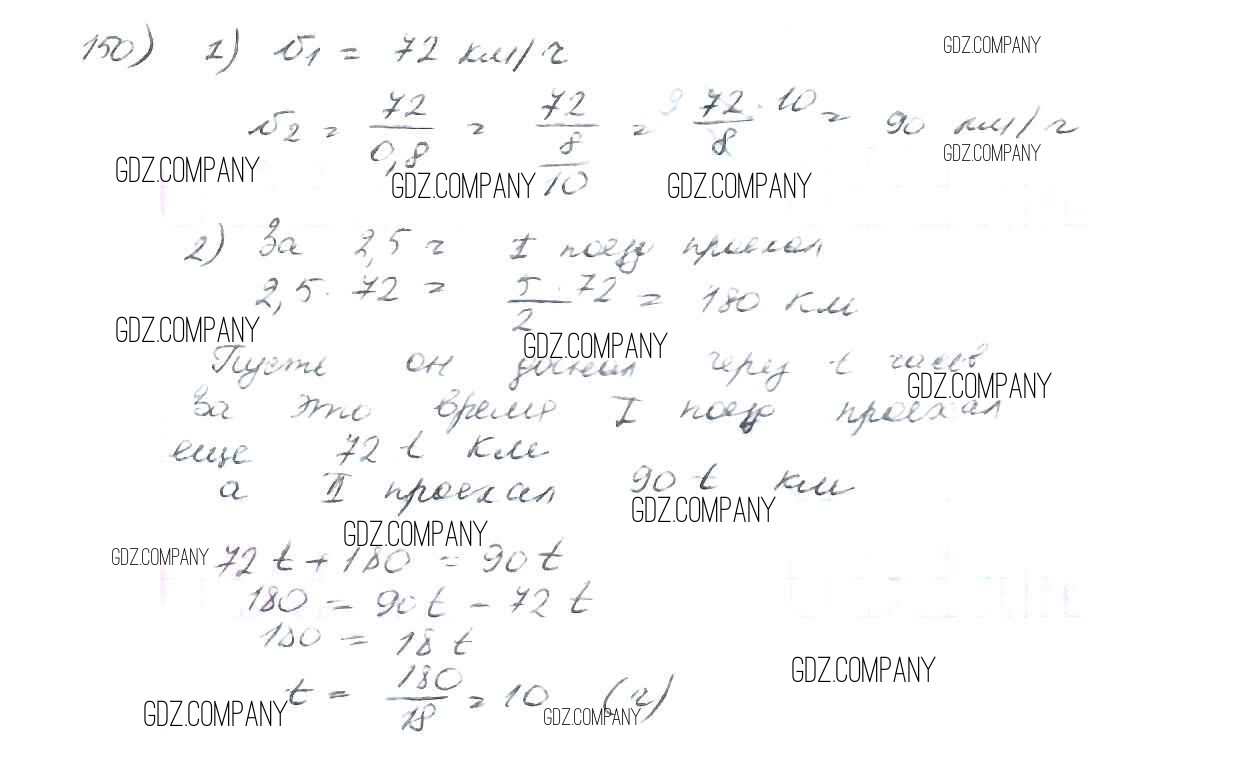 150) 1) v₁ = 72 км/ч
GDZ.COMPANY
v₂ = 72/0,8 = 72/(8/10) = 9 72·10/8 = 90 км/ч
GDZ.COMPANY
GDZ.COMPANY GDZ.COMPANY GDZ.COMPANY
2) За 2,5 ч I поезд проехал
2,5·72 = 5·72/2 = 180 км
GDZ.COMPANY GDZ.COMPANY
Пусть он догнал через t часов
GDZ.COMPANY
За это время I поезд проехал
еще 72 t км
а II проехал 90 t км
GDZ.COMPANY
GDZ.COMPANY
GDZ.COMPANY
72 t + 180 = 90 t
180 = 90 t - 72 t
180 = 18 t
GDZ.COMPANY
t = 180/18 = 10 (ч)
GDZ.COMPANY GDZ.COMPANY